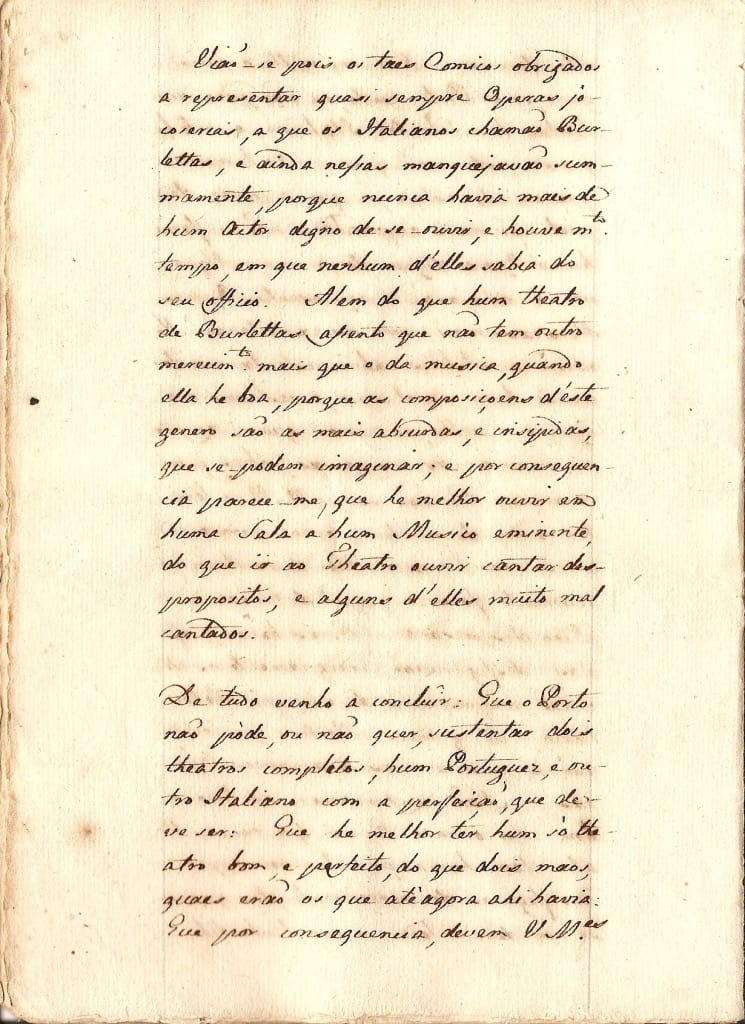 Vião-se pois os taes Comicos obrigados
a representar quasi sempre Operas jo-
coserias, a que os Italianos chamão Bur-
lettas, e ainda nessas manquejavão sum-
mamente, porque nunca havia mais de
hum Actor digno de se-ouvir, e houve m.to
tempo, em que nenhum d'elles sabia do
seu officio. Alem do que hum theatro
de Burlettas assento que não tem outro
merecim.to mais que o da musica, quando
ella he boa, porque as composiçoens d'éste
genero são as mais absurdas, e insipidas,
que se-podem imaginar; e por consequen-
cia parece-me, que he melhor ouvir em
huma Sala a hum Musico eminente,
do que ir ao Theatro ouvir cantar des-
propositos, e alguns d'elles muito mal
cantados.
De tudo venho a concluir: Que o Porto
não póde, ou não quer, sustentar dois
theatros completos, hum Portuguez, e ou-
tro Italiano com a perfeição, que de-
ve ser: Que he melhor ter hum só the-
atro bom, e perfeito, do que dois maos,
quaes erão os que atèagora ahi havia:
Que por consequencia, devem V M.es